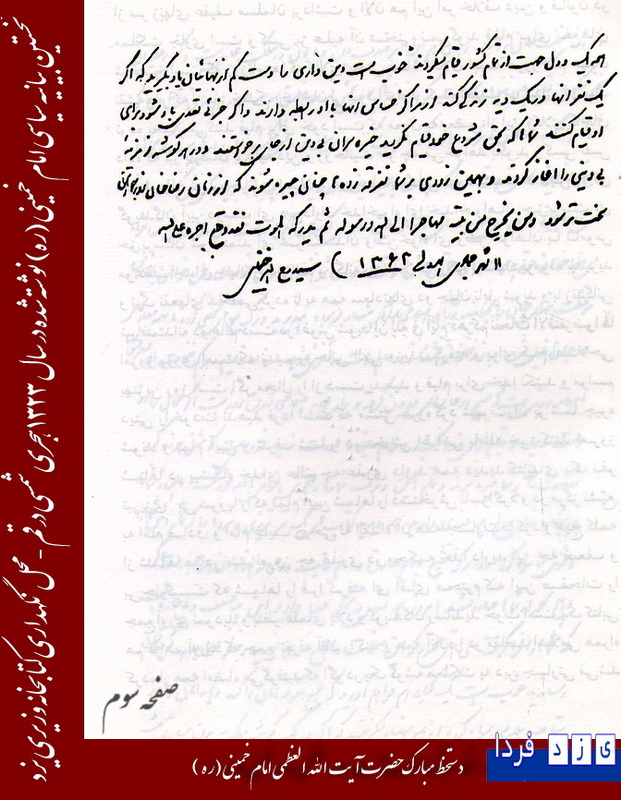 همه یک و دل جهت از تمام کشور قیام میکردند خوب است دین داری را دست کم از بهائیان یاد بگیرید که اگر
یک نفر آنها در یک دیه زندگی کند از مراکز حساس آنها با او رابطه دارند و اگر جزئی تعدی باو شود برای
او قیام کنند شماها که بحق مشروع خود قیام نکردید خیره سران بی دین از جای برخواستند و در هر گوشه زمزمه
بی دینی را آغاز کردند و بهمین زودی بر شما تفرقه زده ها چنان چیره شوند که از زمان رضاخان روزگارتان
سخت تر شود و من یخرج من بیته مهاجرا الی الله و رسوله ثم یدرکه الموت فقد وقع اجره علی الله
۱۱ شهر جمادی الاولی ۱۳۶۳ ) سید روح الله خمینی
صفحه سوم
نخستین بیانیه سیاسی امام خمینی (ره) نوشته شده در سال ۱۳۲۳ هجری شمسی در قم - محل نگهداری کتابخانه وزیری یزد
دستخط مبارک حضرت آیت الله العظمی امام خمینی (ره)
یزد فردا